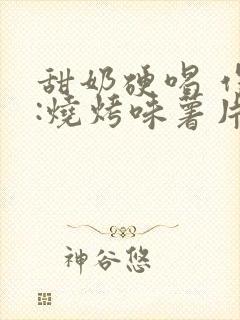 甜奶硬唱 作
:燒烤味薯片
神谷悠